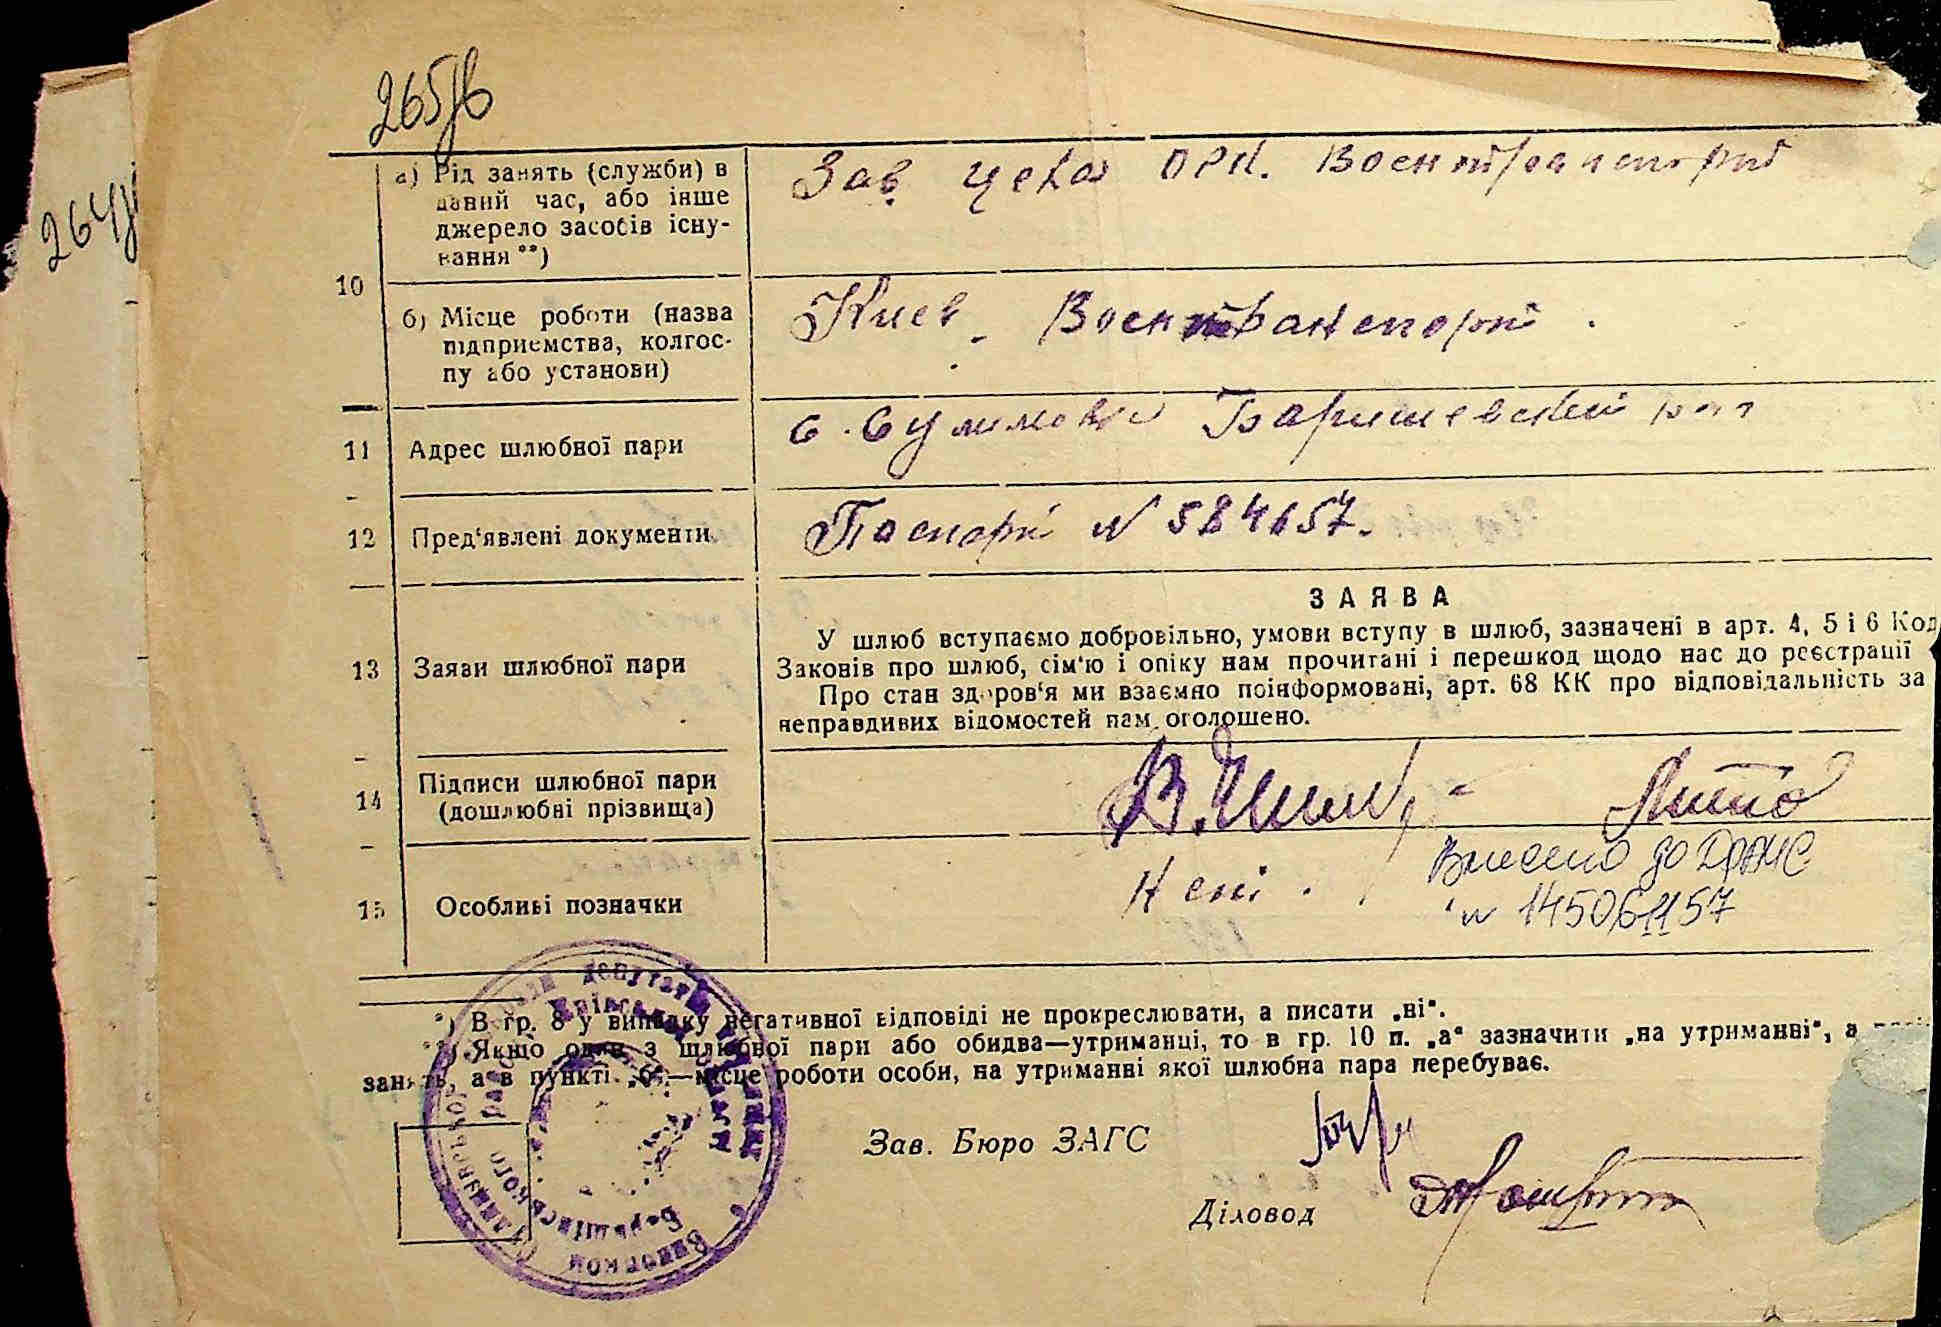 265/6
264/
10
а) Рід занять (служби) в
даний час, або інше
джерело засобів існу-
вання **)
Зав цеха ОРК. Военитранспорт
б) Місце роботи (назва
підприємства, колгос-
пу або установи)
Киев. Воентранспорт.
11 Адрес шлюбної пари
с. Сулимовка Баришевский рай
12 Пред'явлені документи
Паспорт N 584657.
ЗАЯВА
13 Заяви шлюбної пари
У шлюб вступаємо добровільно, умови вступу в шлюб, зазначені в арт. 4, 5 і 6 Код
Законів про шлюб, сім'ю і опіку нам прочитані і перешкод щодо нас до реєстрації
Про стан здоров'я ми взаємно поінформовані, арт. 68 КК про відповідальність за
неправдивих відомостей нам оголошено.
14 Підписи шлюбної пари
(дошлюбні прізвища)
15 Особливі позначки
Нені.
Внесено до ДРАЦС
№ 145061157
*) В гр. 8 у випадку негативної відповіді не прокреслювати, а писати „ні".
**) Якщо один з шлюбної пари або обидва—утриманці, то в гр. 10 п. „а" зазначити „на утриманні", а
занять, а в пункті „б"—місце роботи особи, на утриманні якої шлюбна пара перебуває.
Зав. Бюро ЗАГС
Діловод